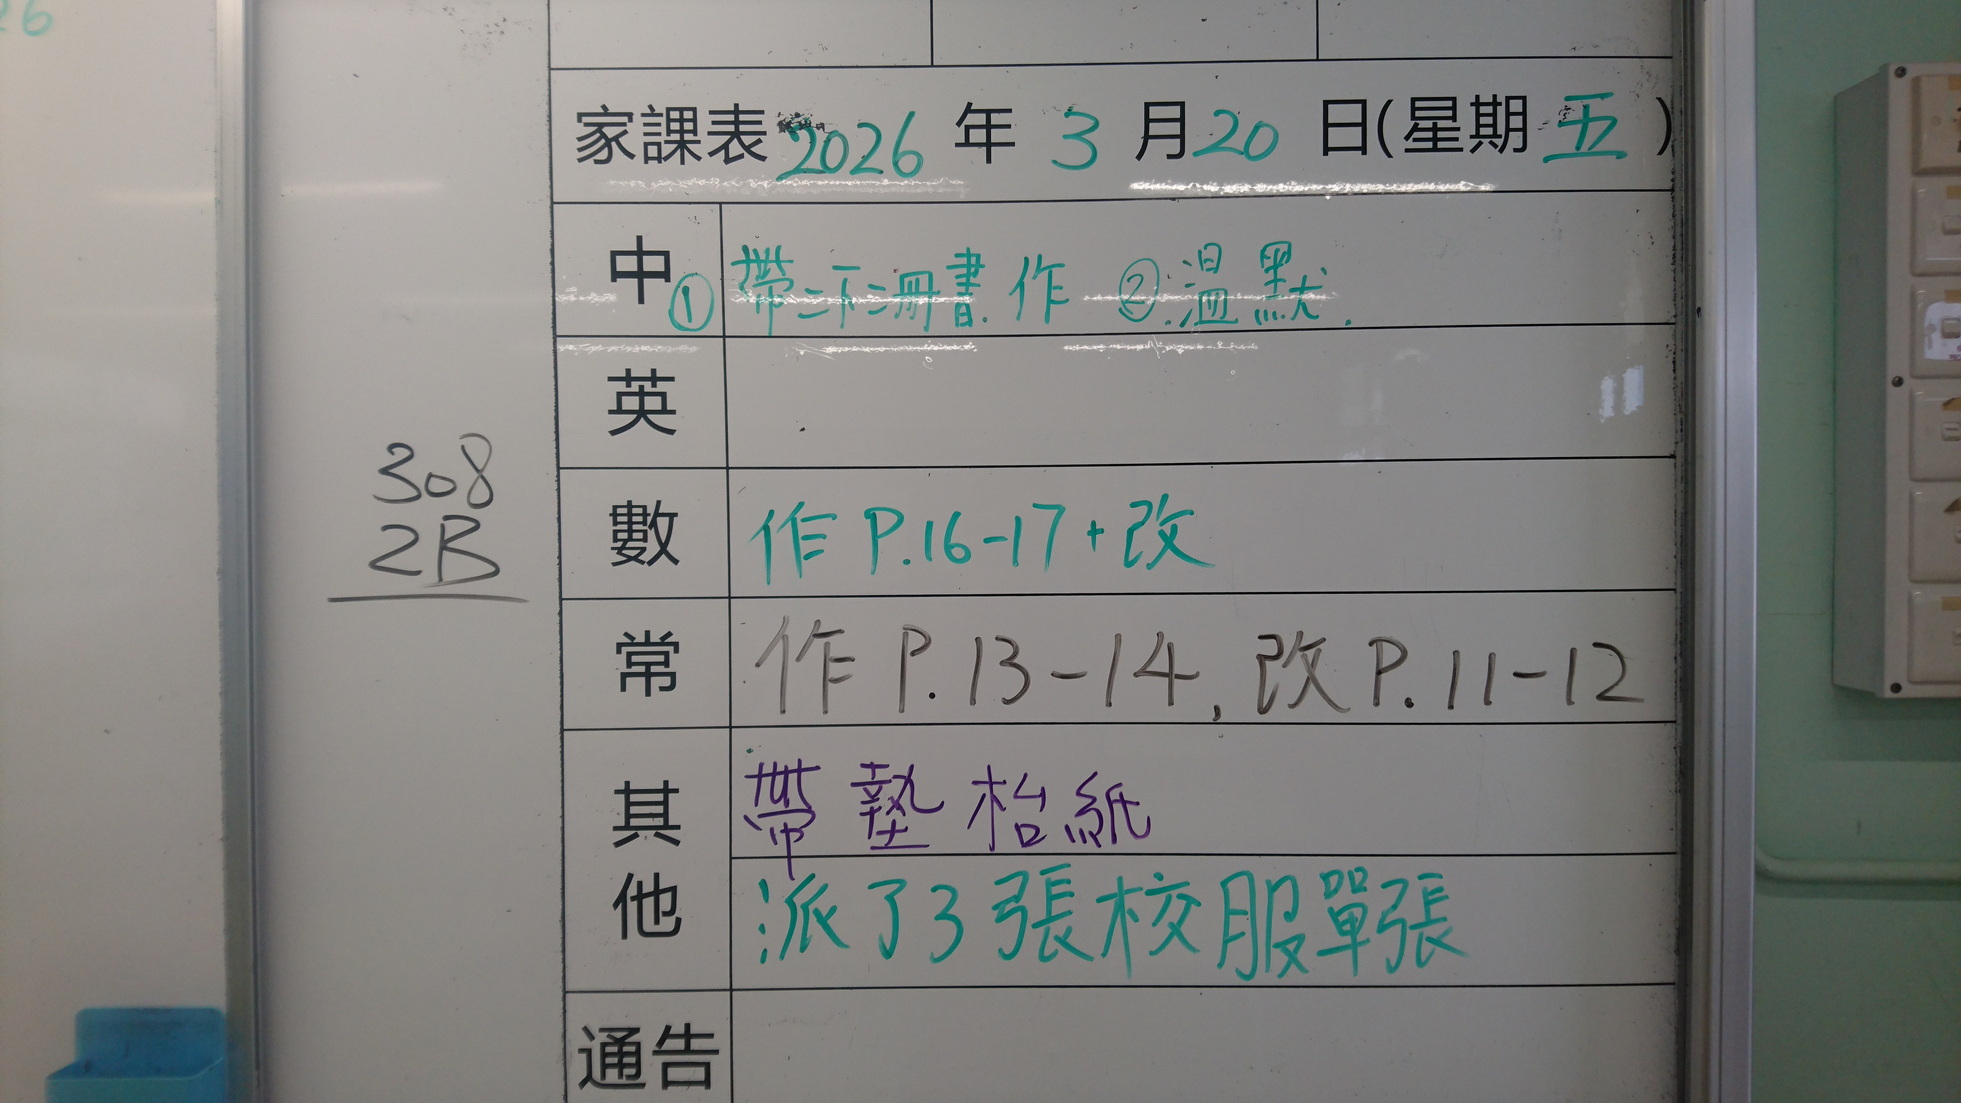 26
家課表 2026 年 3 月 20 日(星期 五 )
中 ① 帶二下二冊書.作 ②.溫默.
英
308
2B
數 作 P.16-17+改
常 作 P.13-14, 改 P.11-12
其他 帶墊枱紙
派了3張校服單張
通告